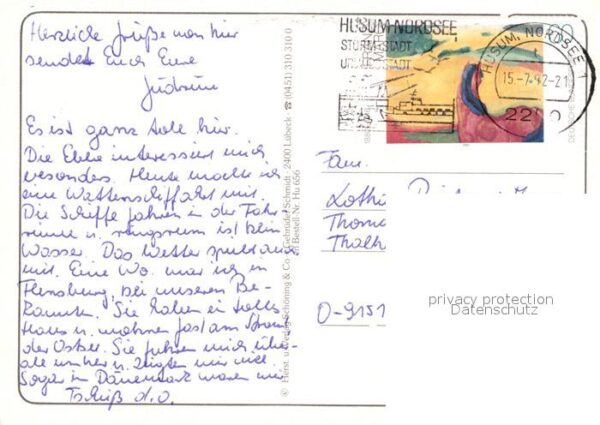 Herzliche Grüße von hier
sendet Euch Eure
Es ist ganz tolle hier.
Die Ebbe interessiert mich
besonders. Heute mache ich
eine Wattenschiffahrt mit.
Die Schiffe fahren in der Fahr-
rinne u. ringsrum ist kein
Wasser. Das Wetter spielt auch
mit. Eine Wo. war ich in
Flensburg, bei unseren Be-
kannten. Sie haben ein tolles
Haus u. wohnen fast am Strand
der Ostsee. Sie fuhren mich über-
all umher u. zeigten mir viel
Sogar in Dänemark waren wir
Tschüß d.O.
© Herst. u. Verlag Schöning & Co + Gebrüder Schmidt · 2400 Lübeck · ☎ (0451) 310 310 0
Bestell-Nr. Hu 656
HUSUM NORDSEE
STURM STADT
HUSUM, NORDSEE 1
15.-7.92-21
2250
Fam.
Thoma
Thalh
O-9151
privacy protection
Datenschutz